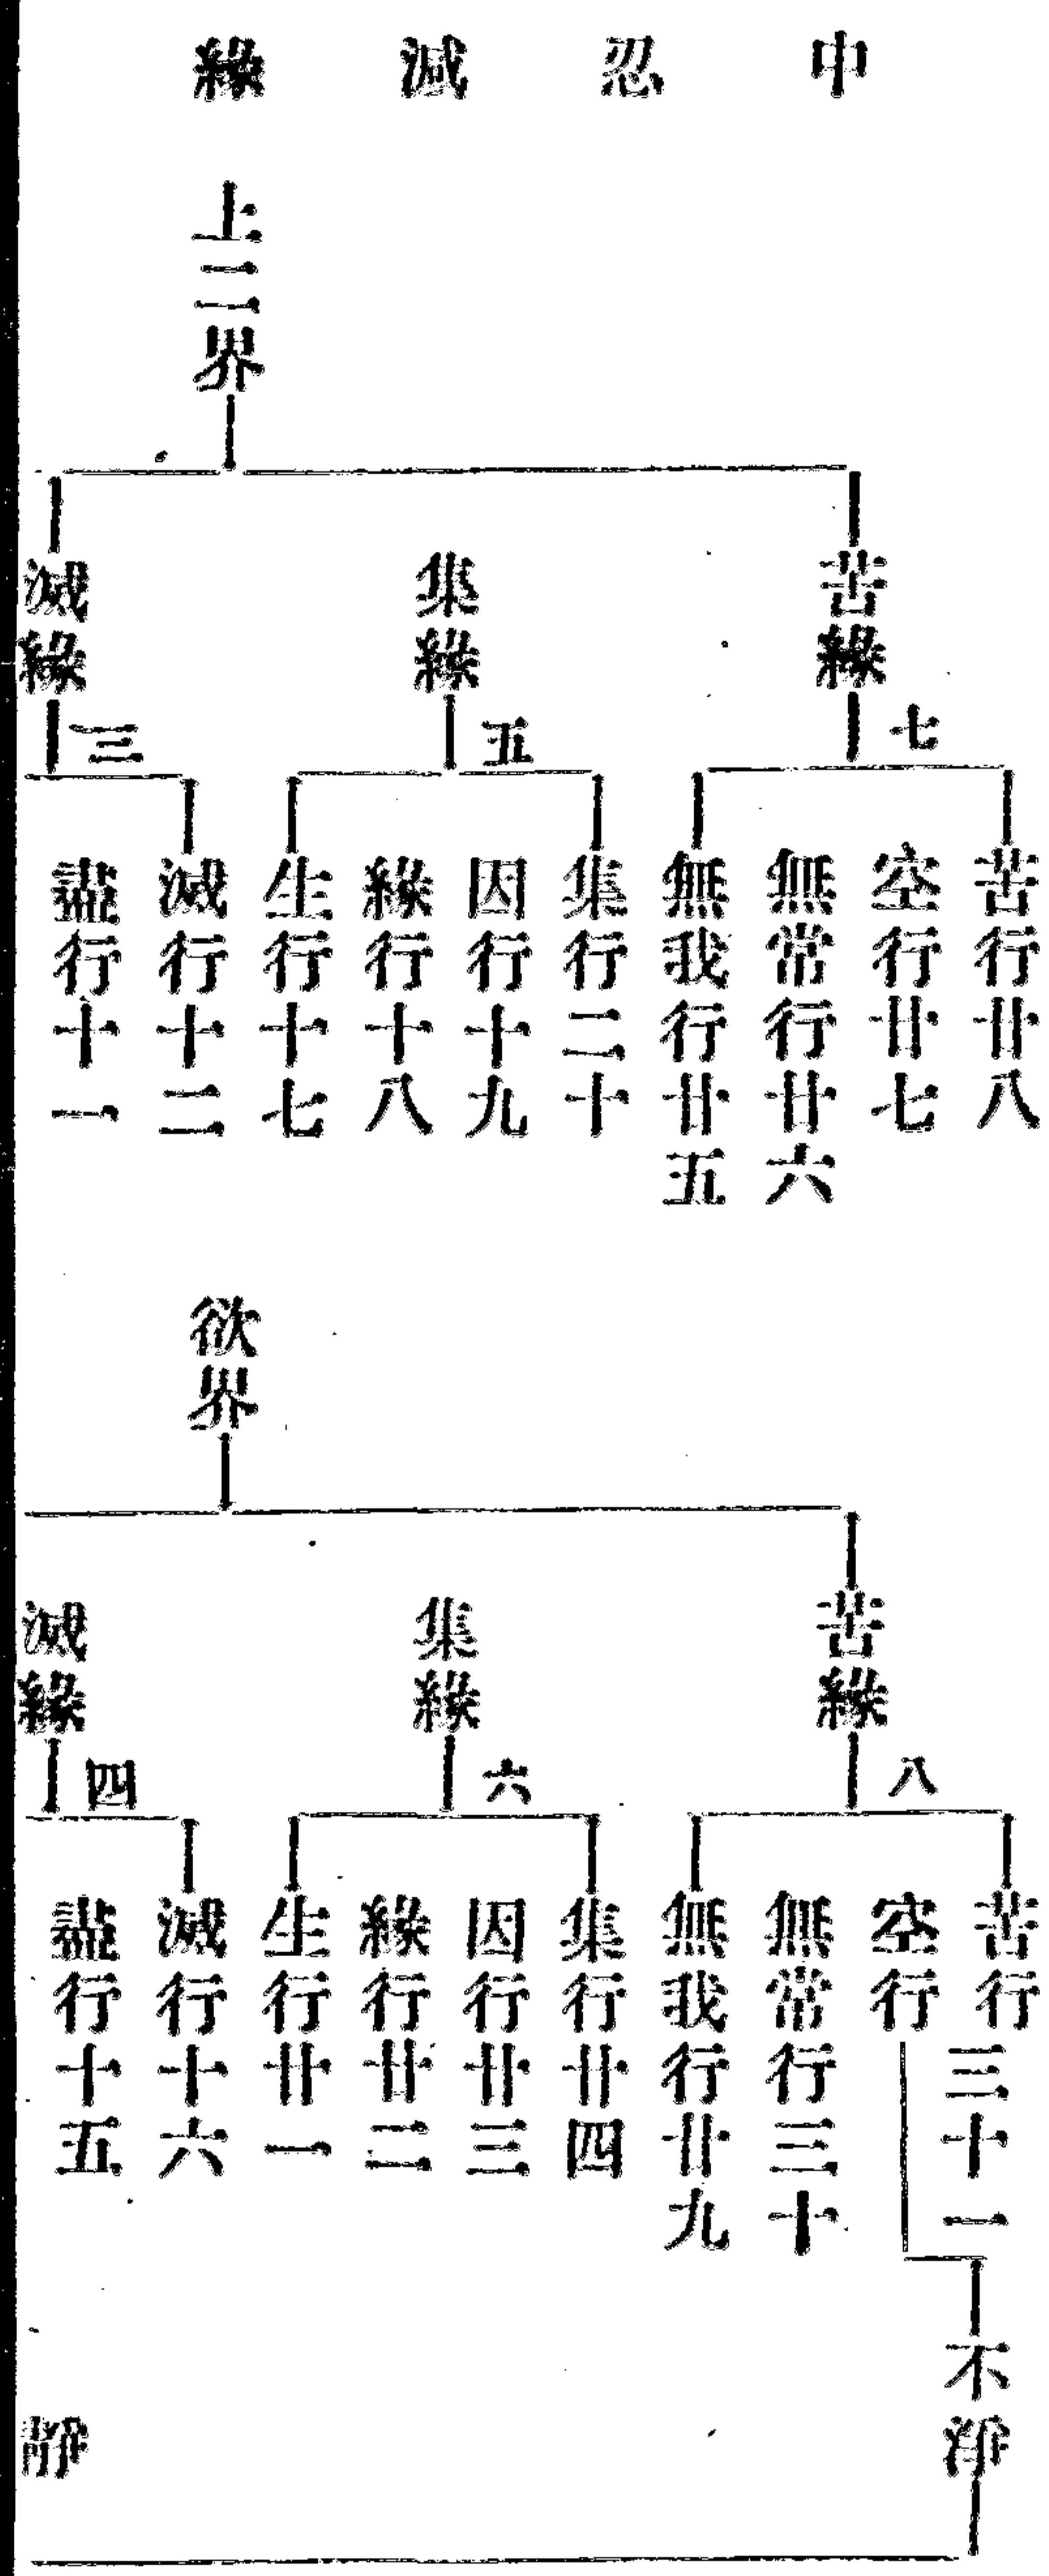 中忍減緣
上二界
苦緣
七
苦行廿八
空行廿七
無常行廿六
無我行廿五
集緣
五
集行二十
因行十九
緣行十八
生行十七
滅緣
三
滅行十二
盡行十一
欲界
苦緣
八
苦行
空行
三十一
不淨
無常行三十
無我行廿九
集緣
六
集行廿四
因行廿三
緣行廿二
生行廿一
滅緣
四
滅行十六
盡行十五
靜